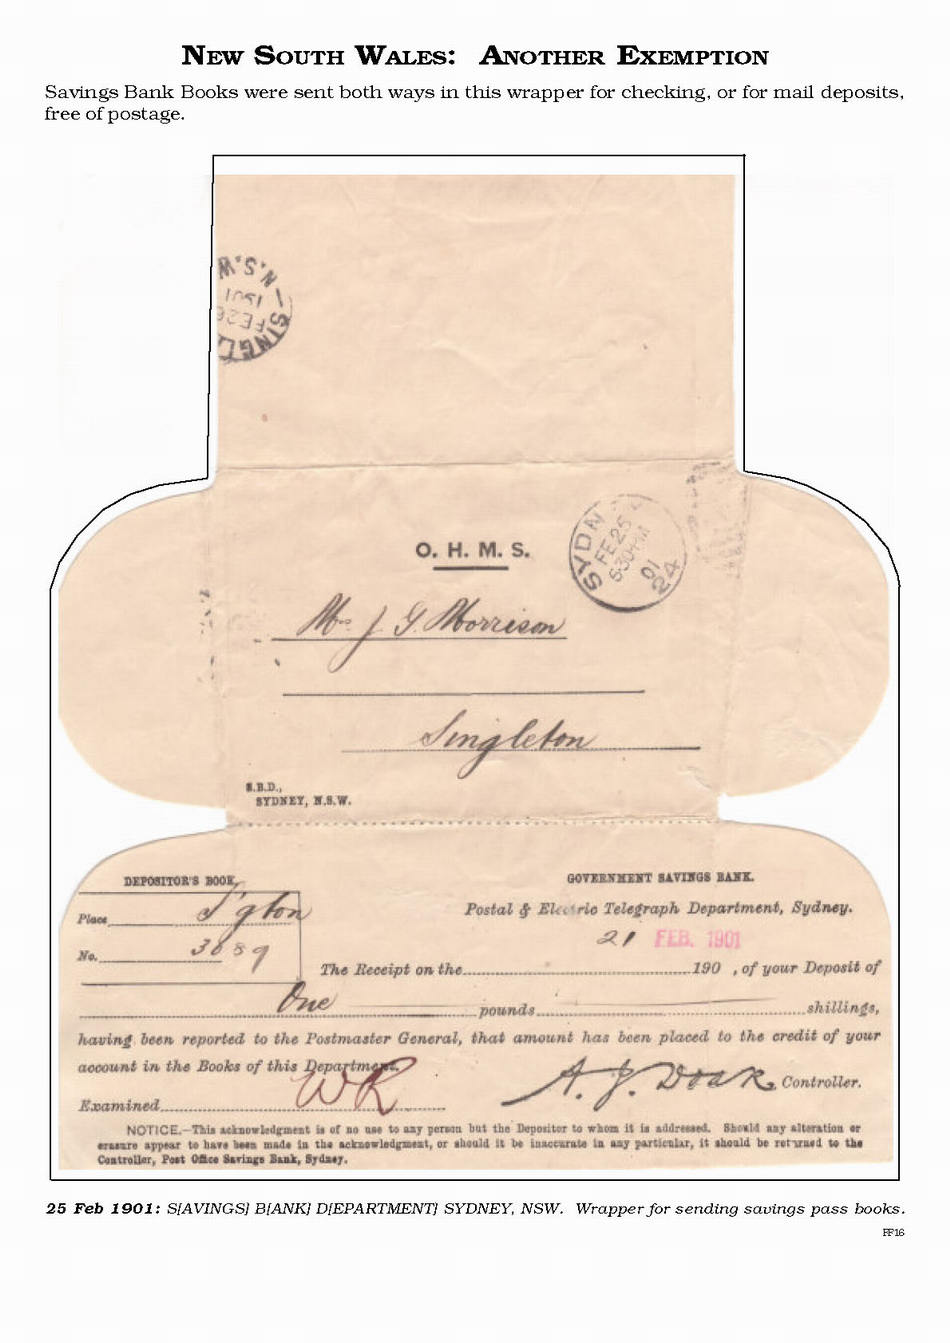 NEW SOUTH WALES: ANOTHER EXEMPTION
Savings Bank Books were sent both ways in this wrapper for checking, or for mail deposits,
free of postage.
N.S.W
1901
FE26
SINGL
O. H. M. S.
SYDN
FE 25
5 30 PM
01
24
Mrs J. G. Morrison
Singleton
S.B.D.,
SYDNEY, N.S.W.
DEPOSITOR'S BOOK.
GOVERNMENT SAVINGS BANK.
Place S'gton
Postal & Electric Telegraph Department, Sydney.
21 FEB. 1901
No. 3689
The Receipt on the 190 , of your Deposit of
One pounds shillings,
having been reported to the Postmaster General, that amount has been placed to the credit of your
account in the Books of this Department.
A. J. Doak Controller.
Examined WR
NOTICE.—This acknowledgment is of no use to any person but the Depositor to whom it is addressed. Should any alteration or
erasure appear to have been made in the acknowledgment, or should it be inaccurate in any particular, it should be returned to the
Controller, Post Office Savings Bank, Sydney.
25 Feb 1901: S[AVINGS] B[ANK] D[EPARTMENT] SYDNEY, NSW. Wrapper for sending savings pass books.
FF16